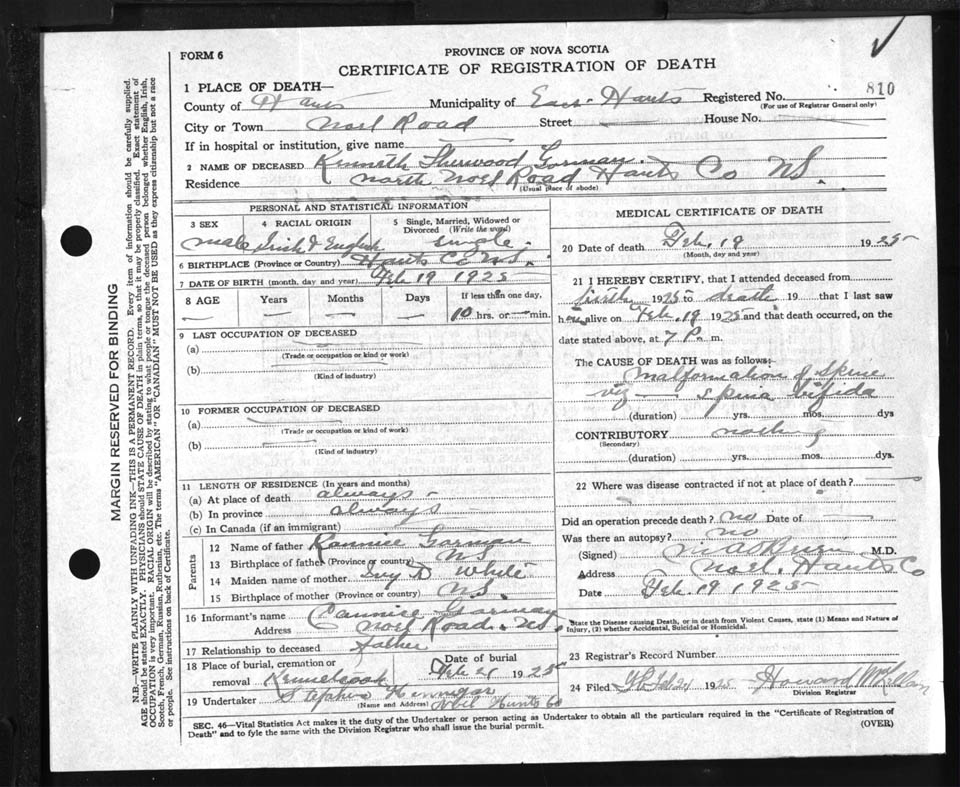 FORM 6
PROVINCE OF NOVA SCOTIA
CERTIFICATE OF REGISTRATION OF DEATH
1 PLACE OF DEATH—
County of Hants Municipality of East Hants Registered No. 810
(For use of Registrar General only)
City or Town Noel Road Street House No.
If in hospital or institution, give name
2 NAME OF DECEASED Kenneth Sherwood Gorman
Residence North Noel Road Hants Co NS.
(Usual place of abode)
PERSONAL AND STATISTICAL INFORMATION
3 SEX male
4 RACIAL ORIGIN Irish & English
5 Single, Married, Widowed or Divorced (Write the word) single
6 BIRTHPLACE (Province or Country) Hants Co N.S.
7 DATE OF BIRTH (month, day and year) Feb 19 1925
8 AGE Years Months Days If less than one day,
— — — 10 hrs. or — min.
9 LAST OCCUPATION OF DECEASED
(a)
(Trade or occupation or kind or work)
(b)
(Kind of industry)
10 FORMER OCCUPATION OF DECEASED
(a)
(Trade or occupation or kind of work)
(b)
(Kind of industry)
11 LENGTH OF RESIDENCE (In years and months)
(a) At place of death always
(b) In province always
(c) In Canada (if an immigrant)
Parents
12 Name of father Gorman
13 Birthplace of father (Province or country) NS
14 Maiden name of mother Ivy D White
15 Birthplace of mother (Province or country) N.S.
16 Informant's name Gorman
Address Noel Road. NS.
17 Relationship to deceased Father
18 Place of burial, cremation or removal Kennetcook Date of burial Feb 24 1925
19 Undertaker Stephen Hennigar
(Name and Address) Noel Hants Co
MEDICAL CERTIFICATE OF DEATH
20 Date of death Feb. 19 1925
(Month, day and year)
21 I HEREBY CERTIFY, that I attended deceased from
birth 1925 to death 19 that I last saw
him alive on Feb. 19 1925 and that death occurred, on the
date stated above, at 7 P. m.
The CAUSE OF DEATH was as follows:-
malformation of Spine
viz — spina bifida
(duration) yrs. mos. dys
CONTRIBUTORY nothing
(Secondary)
(duration) yrs. mos. dys.
22 Where was disease contracted if not at place of death?
Did an operation precede death? no Date of
Was there an autopsy? no
(Signed) M.D.
Address Noel. Hants Co
Date Feb. 19 1925
State the Disease causing Death, or in death from Violent Causes, state (1) Means and Nature of Injury, (2) whether Accidental, Suicidal or Homicidal.
23 Registrar's Record Number
24 Filed Feb 24 1925 Howard
Division Registrar
SEC. 46—Vital Statistics Act makes it the duty of the Undertaker or person acting as Undertaker to obtain all the particulars required in the "Certificate of Registration of
Death" and to fyle the same with the Division Registrar who shall issue the burial permit.
(OVER)
MARGIN RESERVED FOR BINDING
N.B.—WRITE PLAINLY WITH UNFADING INK—THIS IS A PERMANENT RECORD. Every item of information should be carefully supplied.
AGE should be stated EXACTLY. PHYSICIANS should STATE CAUSE OF DEATH in plain terms, so that it may be properly classified. Exact statement of
OCCUPATION is very important. RACIAL ORIGIN will be described by stating to what people or tongue the deceased person belonged whether English, Irish,
Scotch, French, German, Russian, Ruthenian, etc. The terms "AMERICAN" or "CANADIAN" MUST NOT BE USED as they express citizenship but not a race
or people. See instructions on back of Certificate.